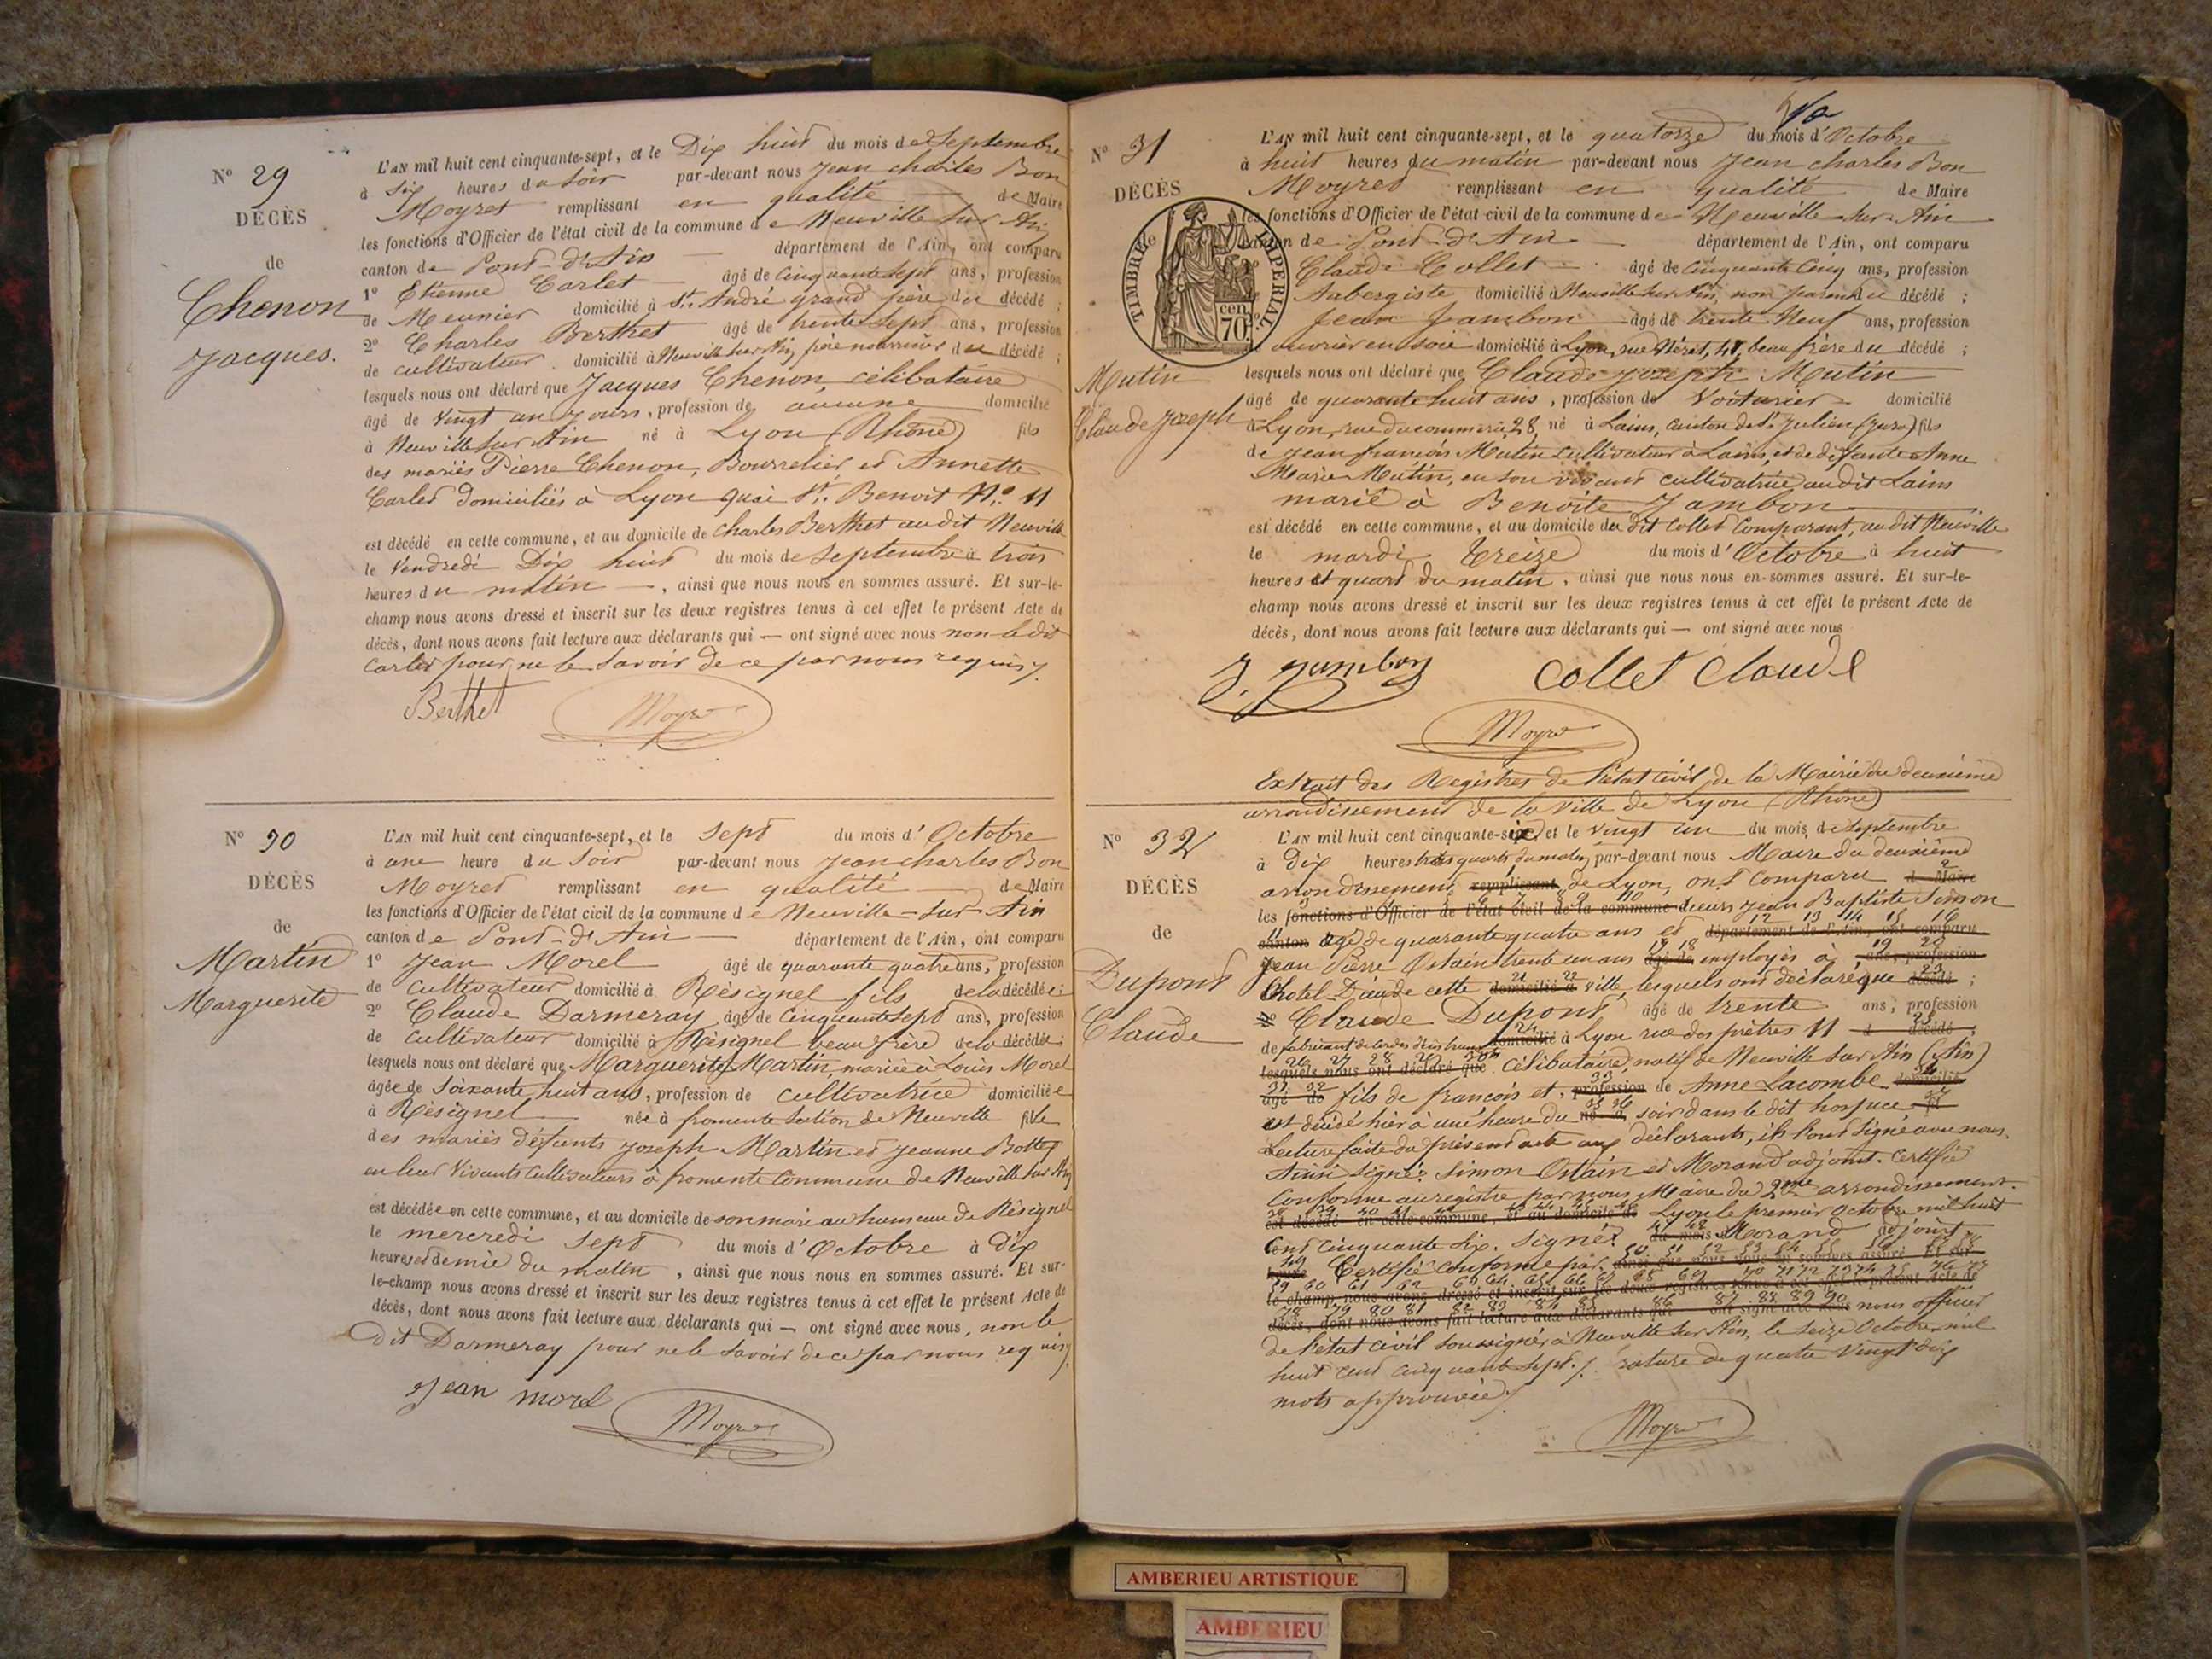 N° 29
DÉCÈS
de
Chenon
Jacques.
L'AN mil huit cent cinquante-sept, et le Dix huit du mois de Septembre
à Six heures du Soir par-devant nous Jean charles Bon
Moyret remplissant en qualité de Maire
les fonctions d'Officier de l'état civil de la commune de Neuville sur Ain
canton de Pont-d'Ain département de l'Ain, ont comparu
1° Etienne Carlet âgé de cinquante sept ans, profession
de Meunier domicilié à St. André grand père du décédé ;
2° Charles Berthet âgé de trente sept ans, profession
de cultivateur domicilié à Neuville sur Ain père nourricier du décédé ;
lesquels nous ont déclaré que Jacques Chenon, célibataire
âgé de vingt un jours, profession de aucune domicilié
à Neuville sur Ain né à Lyon (Rhône) fils
des mariés Pierre Chenon, Bourrelier et Annette
Carlet domiciliés à Lyon quai St. Benoit N.° 11
est décédé en cette commune, et au domicile de Charles Berthet audit Neuville
le Vendredi Dix huit du mois de Septembre à trois
heures du matin —, ainsi que nous nous en sommes assuré. Et sur-le-
champ nous avons dressé et inscrit sur les deux registres tenus à cet effet le présent Acte de
décès, dont nous avons fait lecture aux déclarants qui — ont signé avec nous non le dit
Carlet pour ne le savoir de ce par nous requis./.
Berthet Moyret
N° 30
DÉCÈS
de
Martin
Marguerite
L'AN mil huit cent cinquante-sept, et le Sept du mois d'Octobre
à une heure du Soir par-devant nous Jean charles Bon
Moyret remplissant en qualité de Maire
les fonctions d'Officier de l'état civil de la commune de Neuville-sur-Ain
canton de Pont-d'Ain département de l'Ain, ont comparu
1° Jean Morel âgé de quarante quatre ans, profession
de Cultivateur domicilié à Résignel fils de la décédée ;
2° Claude Darmeray âgé de Cinquante Sept ans, profession
de Cultivateur domicilié à Résignel beau frère de la décédée ;
lesquels nous ont déclaré que Marguerite Martin, mariée à Louis Morel
âgée de Soixante huit ans, profession de cultivatrice domiciliée
à Résignel née à fromente section de Neuville fille
des mariés défunts Joseph Martin et Jeanne Bottex
en leur Vivants Cultivateurs à fromente Commune de Neuville sur Ain
est décédée en cette commune, et au domicile de son mari au hameau de Résignel
le mercredi Sept du mois d'Octobre à Dix
heures et demie du matin, ainsi que nous nous en sommes assuré. Et sur-
le-champ nous avons dressé et inscrit sur les deux registres tenus à cet effet le présent Acte de
décès, dont nous avons fait lecture aux déclarants qui — ont signé avec nous, non le
Dit Darmeray pour ne le savoir de ce par nous requis/.
Jean morel Moyret
N° 31
DÉCÈS
TIMBRE IMPERIAL
70 cen
Mutin
Claude Joseph
L'AN mil huit cent cinquante-sept, et le quatorze du mois d'Octobre
à huit heures du matin par-devant nous Jean charles Bon
Moyret remplissant en qualité de Maire
les fonctions d'Officier de l'état civil de la commune de Neuville-sur-Ain
canton de Pont-d'Ain département de l'Ain, ont comparu
Claude Collet âgé de Cinquante Cinq ans, profession
Aubergiste domicilié à Neuville sur Ain, non parent du décédé ;
Jean Jambon âgé de trente Neuf ans, profession
de ouvrier en soie domicilié à Lyon, rue 41, beau frère du décédé ;
lesquels nous ont déclaré que Claude Joseph Mutin
âgé de quarante huit ans, profession de Voiturier domicilié
à Lyon, rue du commerce 28, né à Lains, canton de St. Julien (Jura) fils
de Jean françois Mutin Cultivateur à Lains, et de défunte Anne
Marie Mutin, en son vivant cultivatrice audit Lains
marié à Benoite Jambon
est décédé en cette commune, et au domicile du dit Collet Comparant, audit Neuville
le mardi treize du mois d'Octobre à huit
heures et quart du matin, ainsi que nous nous en sommes assuré. Et sur-le-
champ nous avons dressé et inscrit sur les deux registres tenus à cet effet le présent Acte de
décès, dont nous avons fait lecture aux déclarants qui — ont signé avec nous
J. Jambon Collet Claude
Moyret
Extrait des Registres de l'état civil de la Mairie du deuxième
arrondissement de la Ville de Lyon (Rhône)
N° 32
DÉCÈS
de
Dupont
Claude
L'AN mil huit cent cinquante-six et le vingt un du mois de Septembre
à Dix heures trois quarts du matin, par-devant nous Maire du deuxième
arrondissement remplissant de Lyon, ont comparu de Maire
les fonctions d'Officier de l'état civil de la commune sieurs Jean Baptiste Simon
canton âgé de quarante quatre ans et département de l'Ain, ont comparu
Jean Pierre Ostain trente un ans âgé de employés à ans, profession
l'hotel Dieu de cette domicilié à ville, lesquels ont déclaré que décédé ;
2° Claude Dupont âgé de trente ans, profession
de fabricant de cordes domicilié à Lyon rue des prêtres 11 d décédé ;
lesquels nous ont déclaré que célibataire, natif de Neuville sur Ain (Ain)
âgé de fils de francois et, profession de Anne Lacombe domicilié
est décédé hier à une heure du né à soir dans le dit hospice fil
Lecture faite du présent acte aux déclarants, ils l'ont signé avec nous.
Ainsi signé: Simon Ostain et Morand adjoint. Certifié
Conforme au registre par nous, Maire du 2me arrondissement.
est décédé en cette commune, et au domicile de Lyon le premier Octobre mil huit
cent cinquante six. Signé: du mois Morand adjoint
heure Certifié conforme par ainsi que nous nous en sommes assuré. Et sur-
le-champ nous avons dressé et inscrit sur les deux registres tenus à cet effet le présent Acte de
décès, dont nous avons fait lecture aux déclarants qui ont signé avec nous nous officier
de l'état civil soussigné, à Neuville sur Ain, le seize Octobre mil
huit cent cinquante sept./. rature de quatre vingt dix
mots approuvée/.
Moyret
AMBERIEU ARTISTIQUE
AMBERIEU